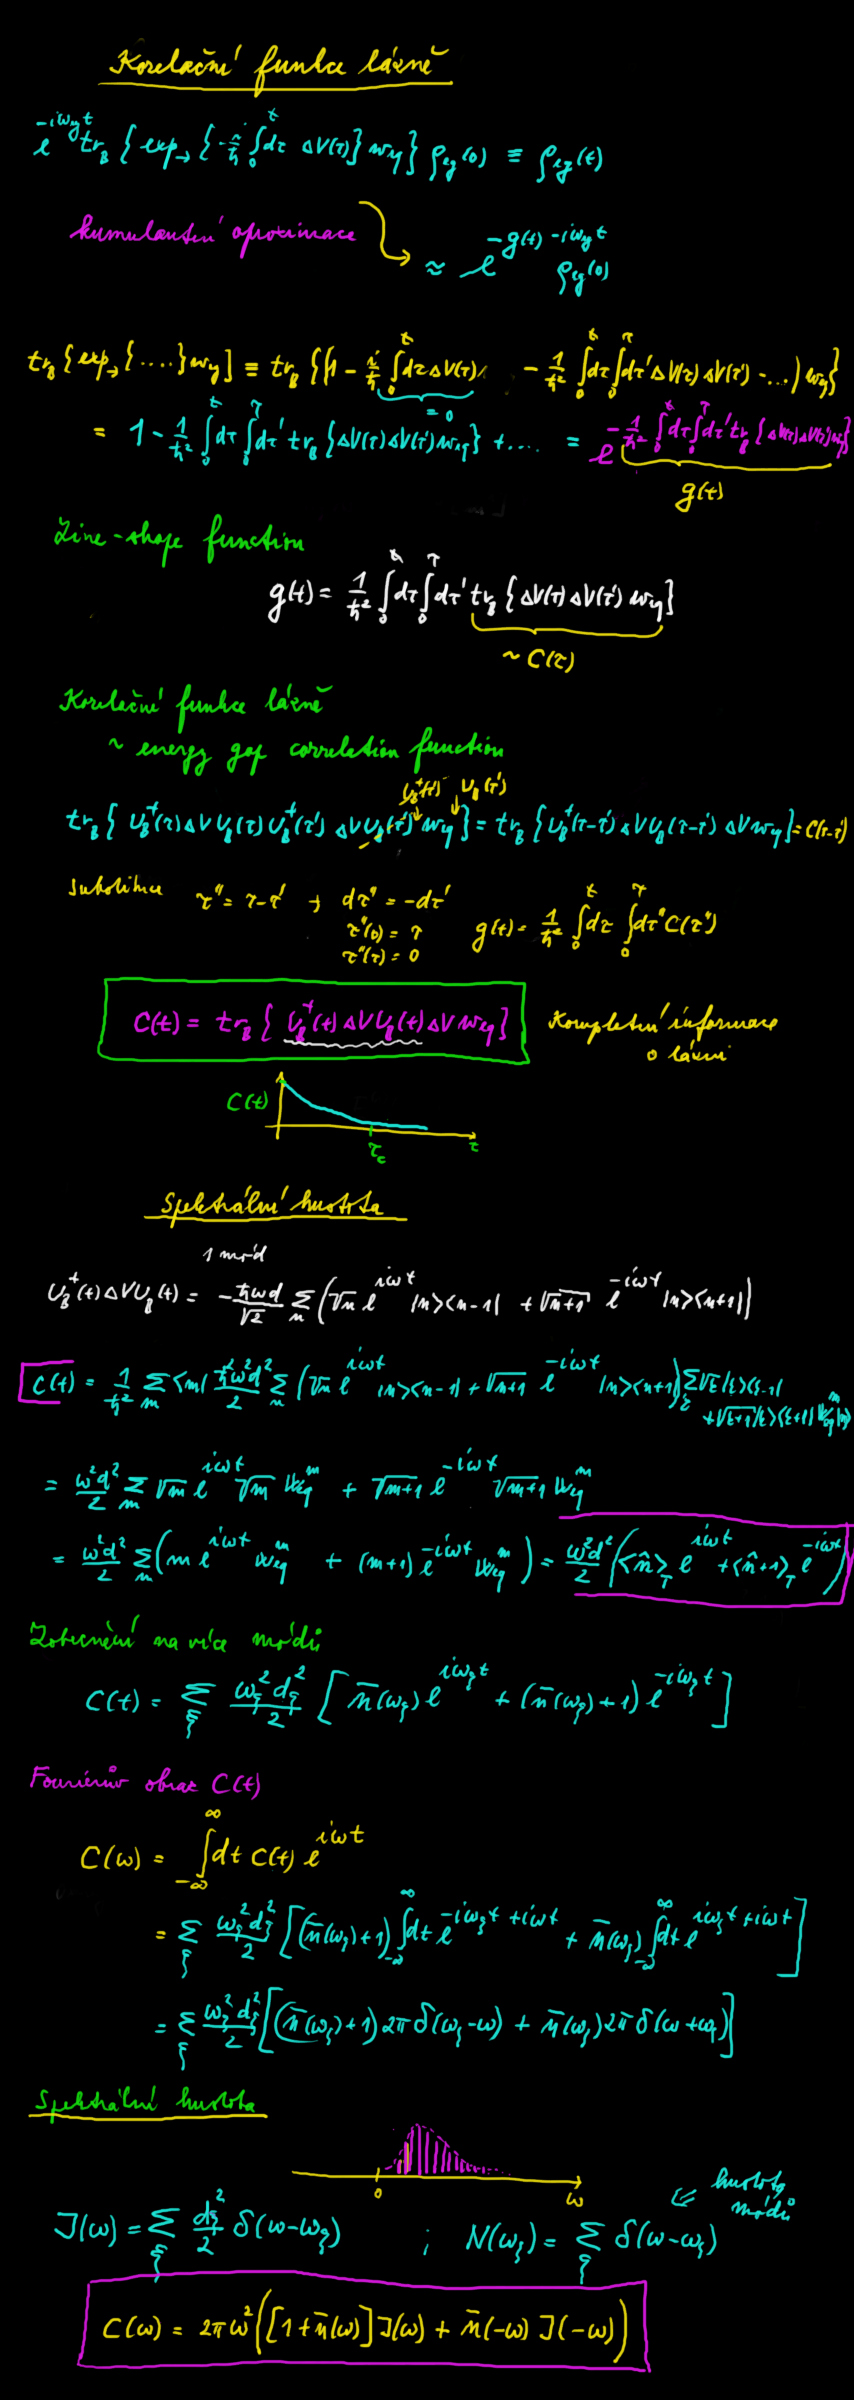 Korelační funkce lázně
e^{-iω_{eg}t} tr_B { exp→ { -i/ħ ∫_0^t dτ ΔV(τ) } w_eq } ρ_eg(0) ≡ ρ_eg(t)
kumulantní aproximace
≈ e^{-g(t) - iω_{eg}t} ρ_eg(0)
tr_B { exp→ { .... } w_eq } ≡ tr_B { (1 - i/ħ ∫_0^t dτ ΔV(τ) - 1/ħ² ∫_0^t dτ ∫_0^τ dτ' ΔV(τ) ΔV(τ') - ...) w_eq }
= 0
= 1 - 1/ħ² ∫_0^t dτ ∫_0^τ dτ' tr_B { ΔV(τ) ΔV(τ') w_eq } + .... = e^{-1/ħ² ∫_0^t dτ ∫_0^τ dτ' tr_B { ΔV(τ) ΔV(τ') w_eq }}
g(t)
Line-shape function
g(t) = 1/ħ² ∫_0^t dτ ∫_0^τ dτ' tr_B { ΔV(τ) ΔV(τ') w_eq }
~ C(τ)
Korelační funkce lázně
~ energy gap correlation function
U_B^+(τ') U_B(τ')
tr_B { U_B^+(τ) ΔV U_B(τ) U_B^+(τ') ΔV U_B(τ') w_eq } = tr_B { U_B^+(τ-τ') ΔV U_B(τ-τ') ΔV w_eq } = C(τ-τ')
substituce τ'' = τ-τ' → dτ'' = -dτ'
τ''(0) = τ g(t) = 1/ħ² ∫_0^t dτ ∫_0^τ dτ'' C(τ'')
τ''(τ) = 0
C(t) = tr_B { U_B^+(t) ΔV U_B(t) ΔV w_eq }
Kompletní informace
o lázni
C(t)
τ_c t
Spektrální hustota
1 mód
U_B^+(t) ΔV U_B(t) = - ħωd/√2 Σ_n ( √n e^{iωt} |n><n-1| + √(n+1) e^{-iωt} |n><n+1| )
C(t) = 1/ħ² Σ_m <m| ħ²ω²d²/2 Σ_n ( √n e^{iωt} |n><n-1| + √(n+1) e^{-iωt} |n><n+1| ) Σ_ξ √ξ |ξ><ξ-1|
+ √(ξ+1) |ξ><ξ+1| W_eq^m |m>
= ω²d²/2 Σ_m √m e^{iωt} √m W_eq^m + √(m+1) e^{-iωt} √(m+1) W_eq^m
= ω²d²/2 Σ_m ( m e^{iωt} W_eq^m + (m+1) e^{-iωt} W_eq^m ) = ω²d²/2 ( <n̂>_T e^{iωt} + <n̂+1>_T e^{-iωt} )
Zobecnění na více módů
C(t) = Σ_ξ ω_ξ² d_ξ²/2 [ n̄(ω_ξ) e^{iω_ξ t} + (n̄(ω_ξ)+1) e^{-iω_ξ t} ]
Fourierův obraz C(t)
C(ω) = ∫_{-∞}^{∞} dt C(t) e^{iωt}
= Σ_ξ ω_ξ² d_ξ²/2 [ (n̄(ω_ξ)+1) ∫_{-∞}^{∞} dt e^{-iω_ξ t + iωt} + n̄(ω_ξ) ∫_{-∞}^{∞} dt e^{iω_ξ t + iωt} ]
= Σ_ξ ω_ξ² d_ξ²/2 [ (n̄(ω_ξ)+1) 2π δ(ω_ξ-ω) + n̄(ω_ξ) 2π δ(ω+ω_ξ) ]
Spektrální hustota
0 ω
hustota
módů
J(ω) = Σ_ξ d_ξ²/2 δ(ω-ω_ξ) ; N(ω_ξ) = Σ_ξ δ(ω-ω_ξ)
C(ω) = 2πω² ( [1+n̄(ω)] J(ω) + n̄(-ω) J(-ω) )